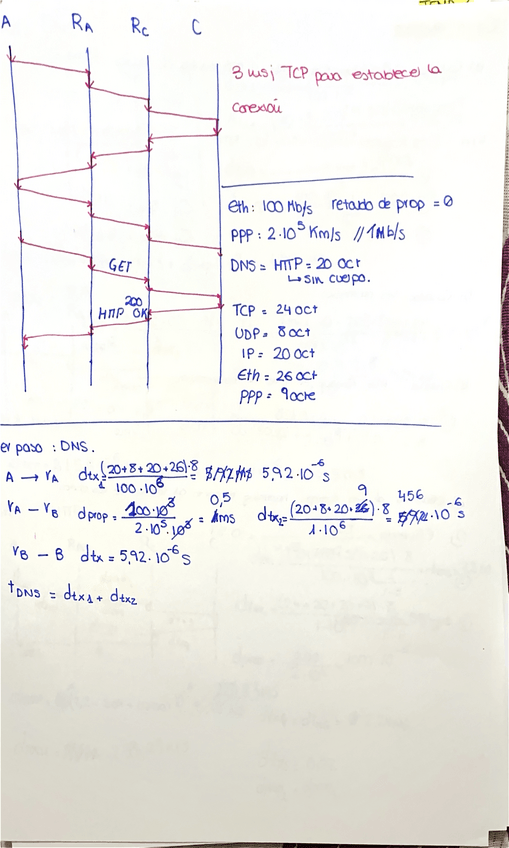 A RA RC C
3 msj TCP para establecer la
conexión
eth: 100 Mb/s retardo de prop = 0
PPP: 2·10⁵ Km/s // 1Mb/s
DNS = HTTP = 20 Oct
↳ sin cuerpo.
GET
200
HTTP OK
TCP = 24 oct
UDP = 8 oct
IP = 20 oct
Eth = 26 oct
PPP = 9 octe
er paso: DNS.
A → rA dtx1 = (20+8+20+26)·8 / 100·10⁶ = 5,92·10⁻⁶ s
rA – rB dprop = 100·10³ / 2·10⁵·10³ = 0,5 ms dtx2 = (20+8+20+9)·8 / 1·10⁶ = 456·10⁻⁶ s
rB – B dtx = 5,92·10⁻⁶ s
tDNS = dtx1 + dtx2